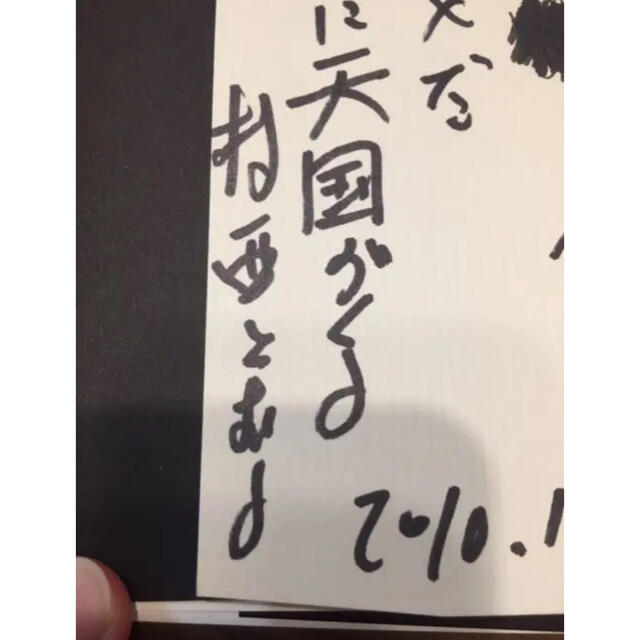 だ
に天国がくる
村西とおる
2010.1